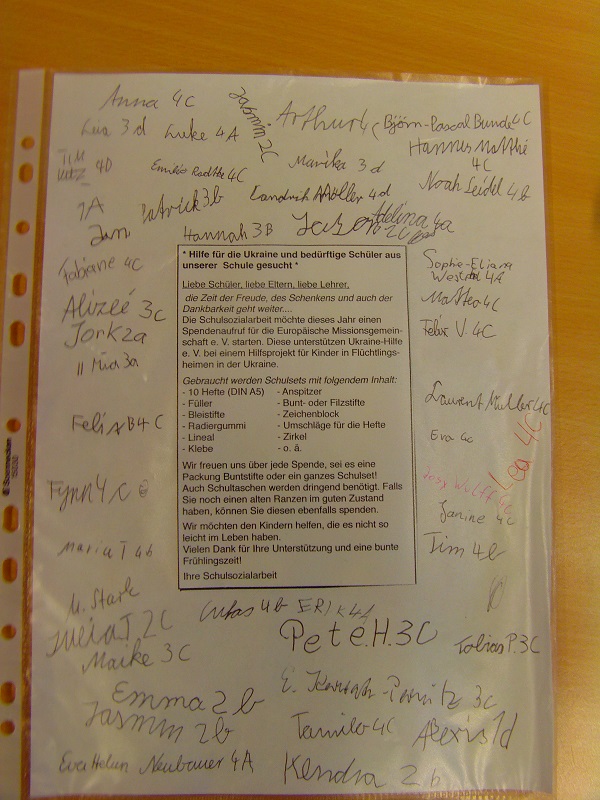 Anna 4C
Jasmin 2C
Arthur 4C
Björn-Pascal Bunde 4C
Lia 3d
Luke 4A
Hannus Matthé
4C
TIM
4D
Emilio Radtke 4C
Marika 3d
Noah Seidel 4b
1A
Patrick 3b
Landrik Möller 4d
Adelina 4a
Jani
Hannah 3B
Jason 2C
Fabiane 4C
* Hilfe für die Ukraine und bedürftige Schüler aus
unserer Schule gesucht *
Liebe Schüler, liebe Eltern, liebe Lehrer,
die Zeit der Freude, des Schenkens und auch der
Dankbarkeit geht weiter....
Die Schulsozialarbeit möchte dieses Jahr einen
Spendenaufruf für die Europäische Missionsgemein-
schaft e. V. starten. Diese unterstützen Ukraine-Hilfe
e. V. bei einem Hilfsprojekt für Kinder in Flüchtlings-
heimen in der Ukraine.
Gebraucht werden Schulsets mit folgendem Inhalt:
- 10 Hefte (DIN A5) - Anspitzer
- Füller - Bunt- oder Filzstifte
- Bleistifte - Zeichenblock
- Radiergummi - Umschläge für die Hefte
- Lineal - Zirkel
- Klebe - o. ä.
Wir freuen uns über jede Spende, sei es eine
Packung Buntstifte oder ein ganzes Schulset!
Auch Schultaschen werden dringend benötigt. Falls
Sie noch einen alten Ranzen im guten Zustand
haben, können Sie diesen ebenfalls spenden.
Wir möchten den Kindern helfen, die es nicht so
leicht im Leben haben.
Vielen Dank für Ihre Unterstützung und eine bunte
Frühlingszeit!
Ihre Schulsozialarbeit
Sophie-Eliana
Westphal 4A
Alizeé 3C
Matteo 4C
Jork 2a
Felix V. 4C
Mia 3a
Laurent Müller 4C
Felix B 4C
Eva 4c
Lea 4C
Fynn 4C
Janine 4c
Maria T 4b
Tim 4b
M. Stark
Lukas 4b
ERIK 4A
Julia J 2C
Pete H. 3C
Tobias P. 3C
Maike 3C
Emma 2b
3C
Jasmin 2b
Tamilo 4C
Alexis 1d
Eva Helen Neubauer 4A
Kendra 2b